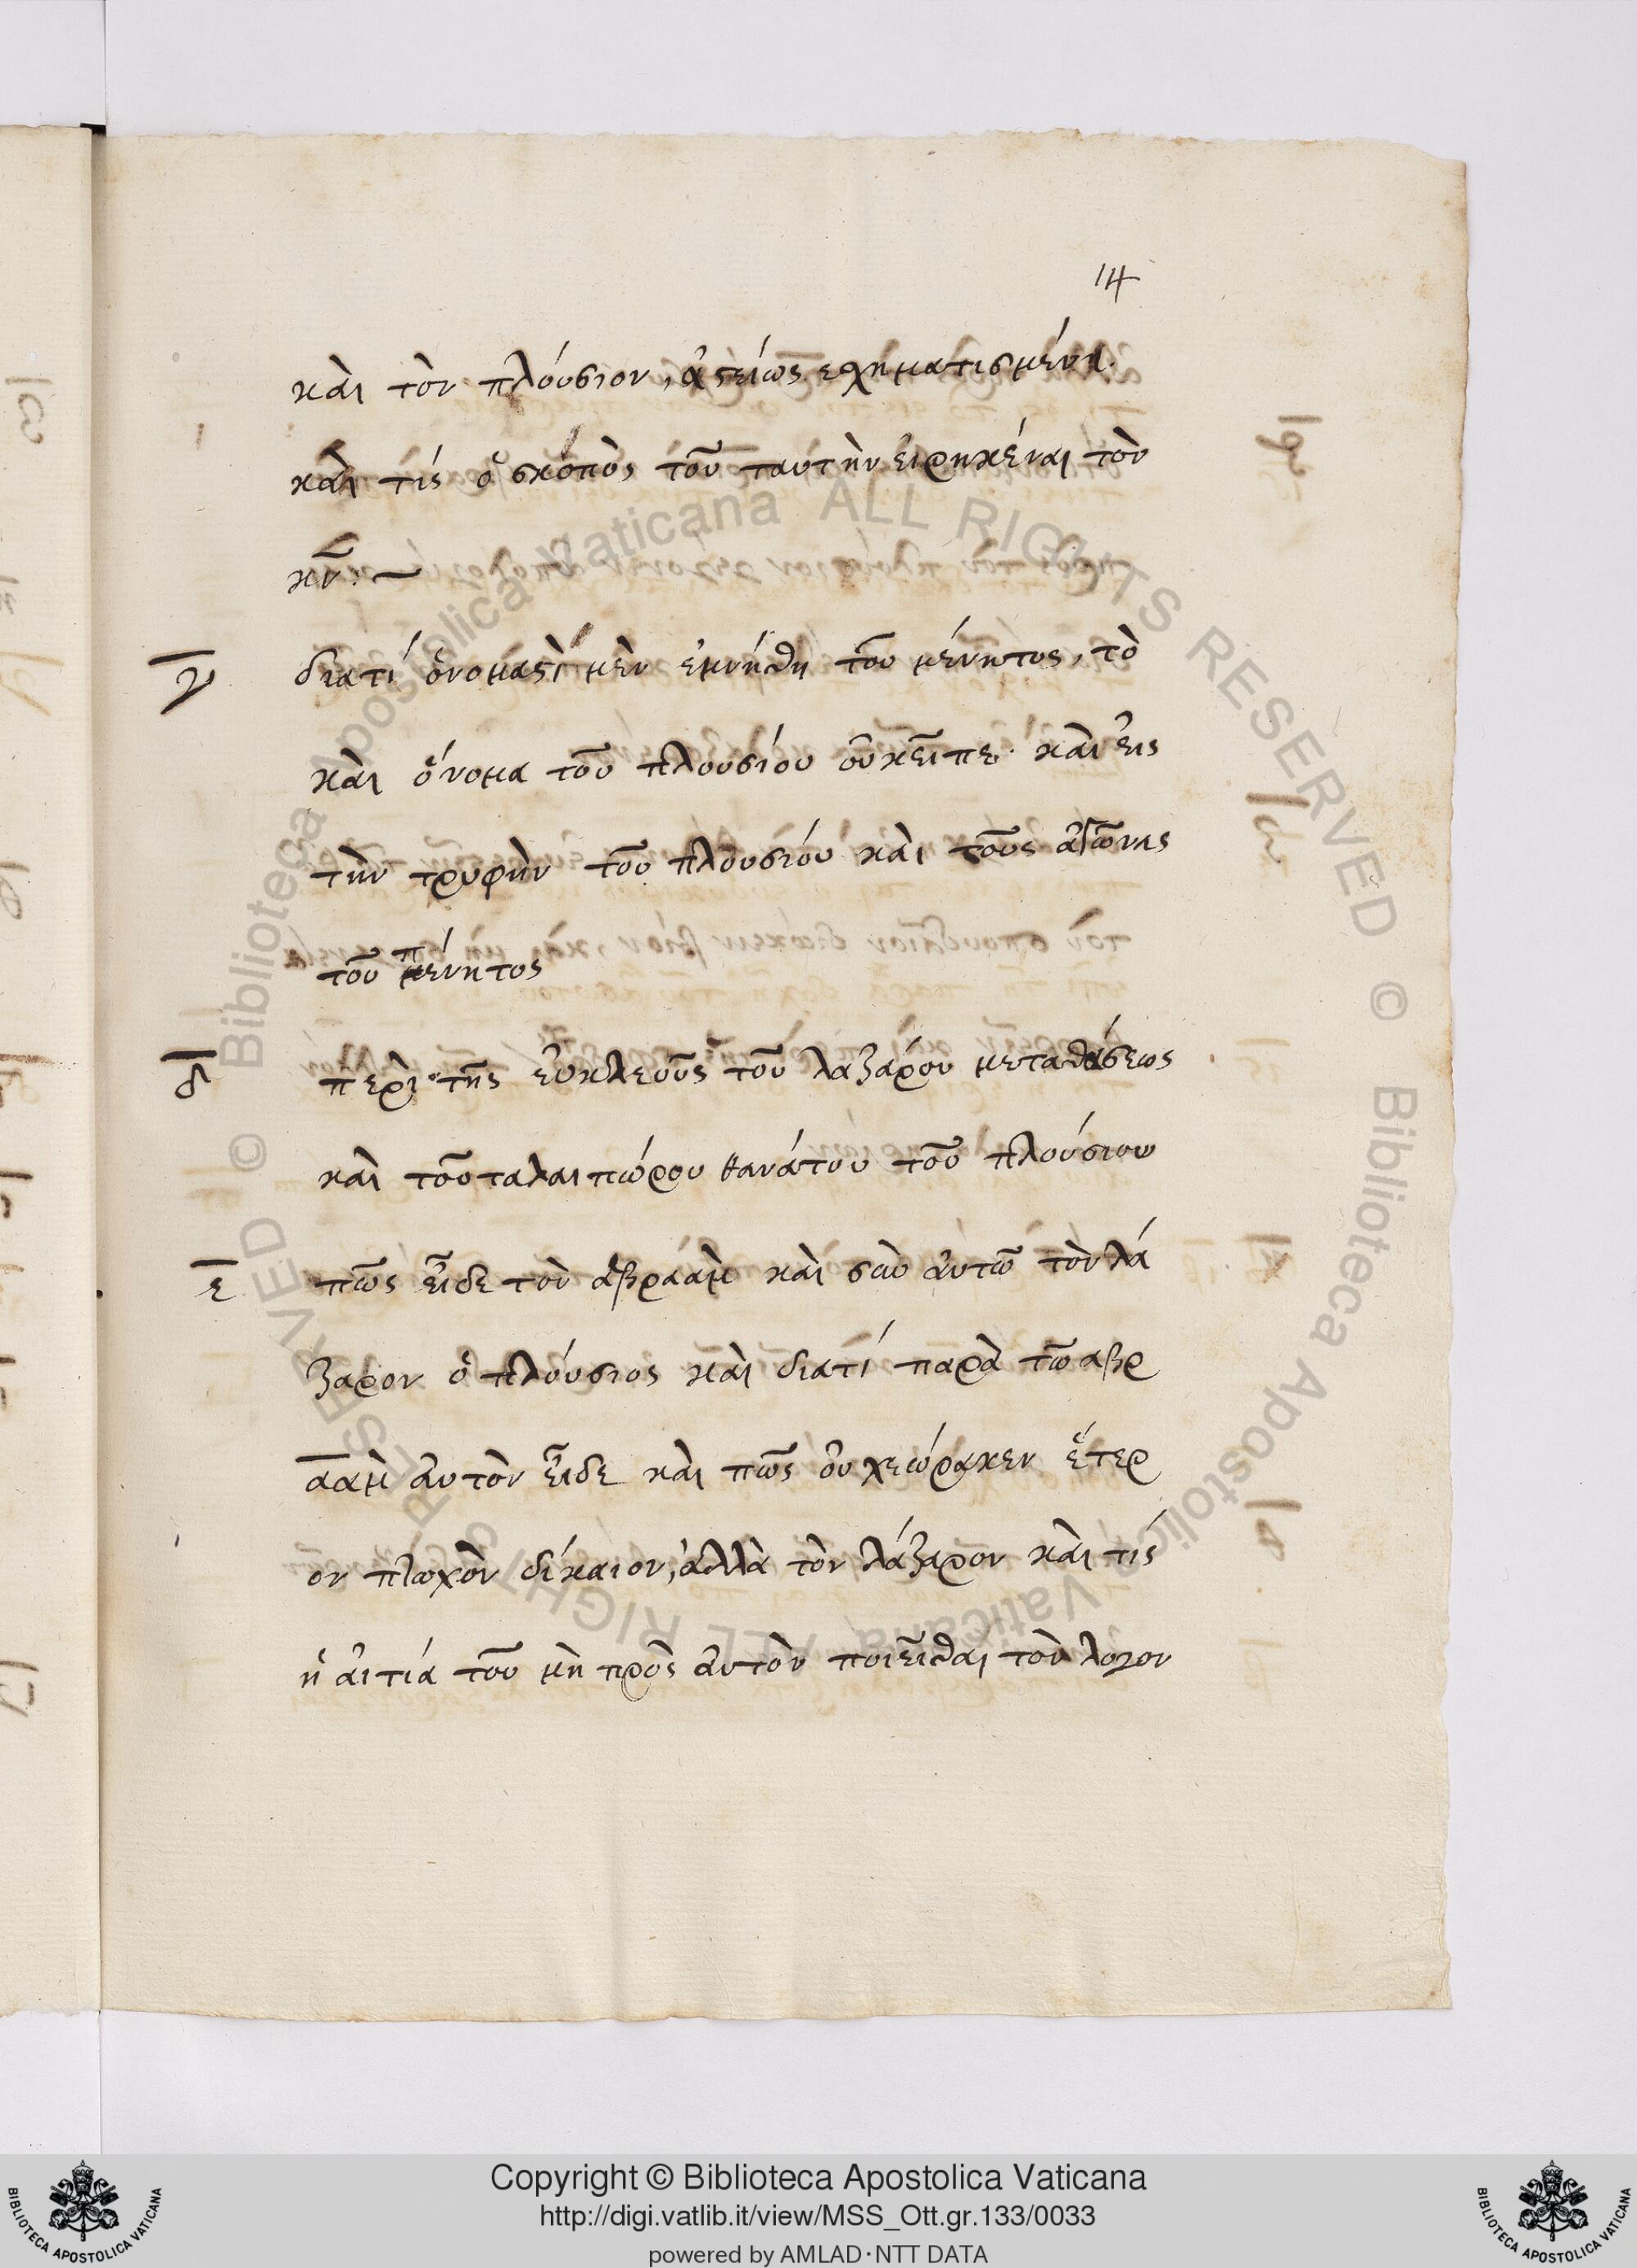 14
καὶ τὸν πλούσιον, ἀστείως ἐχηματισμένη.
καὶ τίς ὁ σκόπὸς τοῦ ταυτὴν εἰρηκέναι τὸν
κν̅. ~
γ̅ διατί ὀνομαστὶ μὲν ἐμνήσθη τοῦ μένητος, τὸ
καὶ ὄνομα τοῦ πλουσίου οὐκεἶπε· καὶ εἰς
τὴν τρυφὴν τοῦ πλουσιόυ καὶ τοῦς ἀγῶνας
τοῦ πένητος
δ̅ περὶ τῆς εὐκλεοῦς τοῦ λαζάρου μεταθάσεως
καὶ τοῦταλαιπώρου θανάτου τοῦ πλούσιου
ε̅ πῶς εἶδε τὸν ἀβραὰμ καὶ σὺν αὐτῶ τὸν λά
ζαρον ὁ πλόυσιος καὶ διατί παρὰ τῶ αβρ
ααμ̀ αυτὸν εἶδε καὶ πῶς οὐχεώρακεν ἕτερ
ον πτωχὸν δίκαιον, ἀλλὰ τὸν λάζαρον καὶ τίς
ἡ αἰτία τοῦ μὴ πρὸς αὐτὸν ποιεῖσθαι τὸν λογον
Copyright © Biblioteca Apostolica Vaticana
http://digi.vatlib.it/view/MSS_Ott.gr.133/0033
powered by AMLAD·NTT DATA
BIBLIOTECA APOSTOLICA VATICANA
BIBLIOTECA APOSTOLICA VATICANA
© Biblioteca Apostolica Vaticana ALL RIGHTS RESERVED © Biblioteca Apostolica Vaticana ALL RIGHTS RESERVED